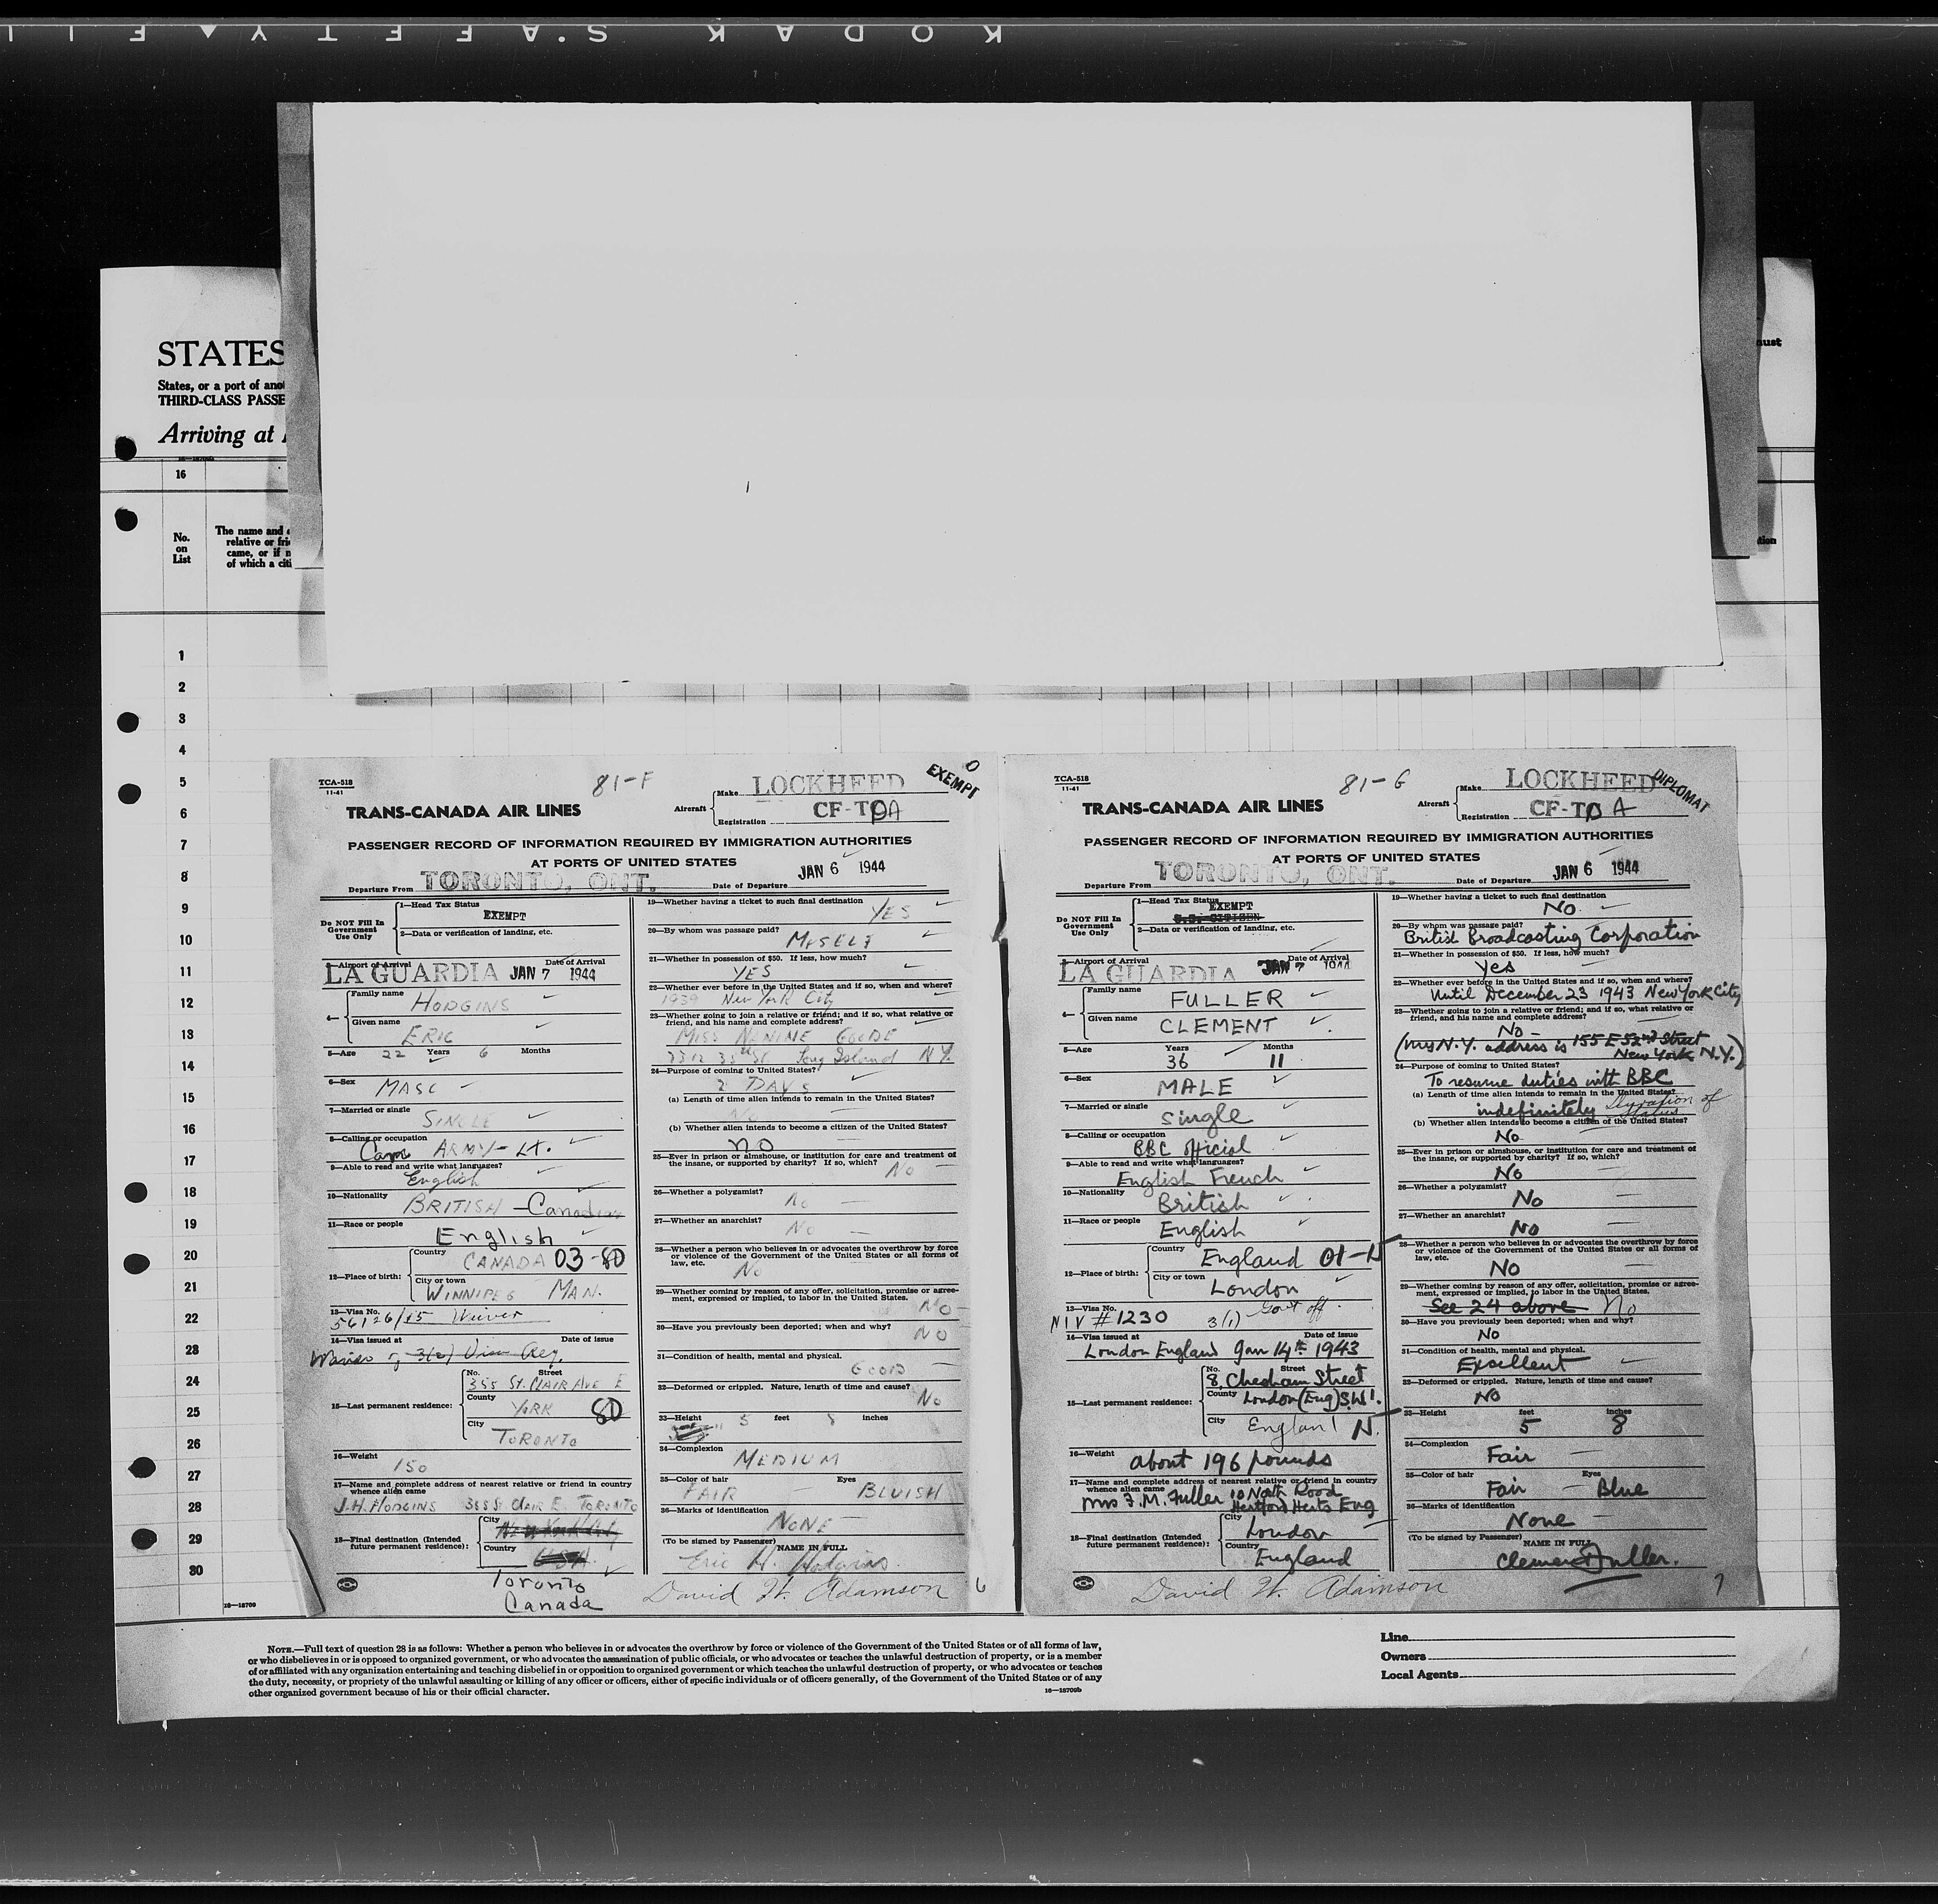 KODAK SAFETY FIL
STATES
States, or a port of anot
THIRD-CLASS PASSE
Arriving at
16
No.
on
List
The name and
relative or frie
came, or if n
of which a citi
1
2
3
4
5
6
7
8
9
10
11
12
13
14
15
16
17
18
19
20
21
22
23
24
25
26
27
28
29
30
16—18709
TCA-518
11-41
81-F
Make LOCKHEED
EXEMPT
TRANS-CANADA AIR LINES
Aircraft
Registration CF-TDA
PASSENGER RECORD OF INFORMATION REQUIRED BY IMMIGRATION AUTHORITIES
AT PORTS OF UNITED STATES
Departure From TORONTO, ONT.
Date of Departure JAN 6 1944
Do NOT Fill In
Government
Use Only
1—Head Tax Status
EXEMPT
2—Data or verification of landing, etc.
3—Airport of Arrival Date of Arrival
LA GUARDIA JAN 7 1944
4—
Family name
HODGINS
Given name
ERIC
5—Age 22 Years 6 Months
6—Sex
MASC
7—Married or single
SINGLE
8—Calling or occupation
Can ARMY-LT.
9—Able to read and write what languages?
English
10—Nationality
BRITISH—Canadian
11—Race or people
English
12—Place of birth:
Country
CANADA 03-80
City or town
WINNIPEG MAN.
13—Visa No.
56126/15 Waiver
14—Visa issued at Date of issue
3(2)
15—Last permanent residence:
No. Street
355 ST. CLAIR AVE E
County
YORK 80
City
TORONTO
16—Weight
150
17—Name and complete address of nearest relative or friend in country
whence alien came
J.H. HODGINS 355 St CLAIR E. TORONTO
18—Final destination (Intended
future permanent residence):
City
New York City
Country
USA
Toronto
Canada
19—Whether having a ticket to such final destination
YES
20—By whom was passage paid?
MYSELF
21—Whether in possession of $50. If less, how much?
YES
22—Whether ever before in the United States and if so, when and where?
1939 New York City
23—Whether going to join a relative or friend; and if so, what relative or
friend, and his name and complete address?
MISS NANINE GOODE
Long Island N.Y.
24—Purpose of coming to United States?
2 DAYS
(a) Length of time alien intends to remain in the United States?
No
(b) Whether alien intends to become a citizen of the United States?
no
25—Ever in prison or almshouse, or institution for care and treatment of
the insane, or supported by charity? If so, which?
No
26—Whether a polygamist?
No
27—Whether an anarchist?
No
28—Whether a person who believes in or advocates the overthrow by force
or violence of the Government of the United States or all forms of
law, etc.
No
29—Whether coming by reason of any offer, solicitation, promise or agree-
ment, expressed or implied, to labor in the United States.
No
30—Have you previously been deported; when and why?
NO
31—Condition of health, mental and physical.
GOOD
32—Deformed or crippled. Nature, length of time and cause?
No
33—Height 5 feet 8 inches
34—Complexion
MEDIUM
35—Color of hair Eyes
FAIR BLUISH
36—Marks of identification
NONE
(To be signed by Passenger) NAME IN FULL
Eric H. Hodgins.
David W. Adamson 6
TCA-518
11-41
81-G
Make LOCKHEED
DIPLOMAT
TRANS-CANADA AIR LINES
Aircraft
Registration CF-TDA
PASSENGER RECORD OF INFORMATION REQUIRED BY IMMIGRATION AUTHORITIES
AT PORTS OF UNITED STATES
Departure From TORONTO, ONT.
Date of Departure JAN 6 1944
Do NOT Fill In
Government
Use Only
1—Head Tax Status
EXEMPT
U.S. CITIZEN
2—Data or verification of landing, etc.
3—Airport of Arrival Date of Arrival
LA GUARDIA JAN 7 1944
4—
Family name
FULLER
Given name
CLEMENT
5—Age Years Months
36 11
6—Sex
MALE
7—Married or single
single
8—Calling or occupation
BBC official
9—Able to read and write what languages?
English French
10—Nationality
British
11—Race or people
English
12—Place of birth:
Country
England 01-N
City or town
London
13—Visa No.
NIV # 1230 3(1) Gov't off.
14—Visa issued at Date of issue
London England Jan 14th 1943
15—Last permanent residence:
No. Street
8, Chesham Street
County London (Eng) S.W1.
City
England N.
16—Weight
about 196 pounds
17—Name and complete address of nearest relative or friend in country
whence alien came
Mrs F.M. Fuller 10 North Road
Hertford Herts Eng
18—Final destination (Intended
future permanent residence):
City
London
Country
England
19—Whether having a ticket to such final destination
No.
20—By whom was passage paid?
British Broadcasting Corporation
21—Whether in possession of $50. If less, how much?
yes
22—Whether ever before in the United States and if so, when and where?
Until December 23 1943 New York City
23—Whether going to join a relative or friend; and if so, what relative or
friend, and his name and complete address?
No-
(my N.Y. address is 155 E 52nd Street
New York N.Y.)
24—Purpose of coming to United States?
To resume duties with BBC
(a) Length of time alien intends to remain in the United States?
indefinitely Duration of
Status
(b) Whether alien intends to become a citizen of the United States?
No.
25—Ever in prison or almshouse, or institution for care and treatment of
the insane, or supported by charity? If so, which?
No
26—Whether a polygamist?
No
27—Whether an anarchist?
No
28—Whether a person who believes in or advocates the overthrow by force
or violence of the Government of the United States or all forms of
law, etc.
No
29—Whether coming by reason of any offer, solicitation, promise or agree-
ment, expressed or implied, to labor in the United States.
See 24 above No
30—Have you previously been deported; when and why?
No
31—Condition of health, mental and physical.
Excellent
32—Deformed or crippled. Nature, length of time and cause?
No
33—Height feet inches
5 8
34—Complexion
Fair
35—Color of hair Eyes
Fair Blue
36—Marks of identification
None
(To be signed by Passenger) NAME IN FULL
Clement Fuller.
David W. Adamson 7
NOTE.—Full text of question 28 is as follows: Whether a person who believes in or advocates the overthrow by force or violence of the Government of the United States or of all forms of law,
or who disbelieves in or is opposed to organized government, or who advocates the assassination of public officials, or who advocates or teaches the unlawful destruction of property, or is a member
of or affiliated with any organization entertaining and teaching disbelief in or opposition to organized government or which teaches the unlawful destruction of property, or who advocates or teaches
the duty, necessity, or propriety of the unlawful assaulting or killing of any officer or officers, either of specific individuals or of officers generally, of the Government of the United States or of any
other organized government because of his or their official character.
16—18709b
Line
Owners
Local Agents